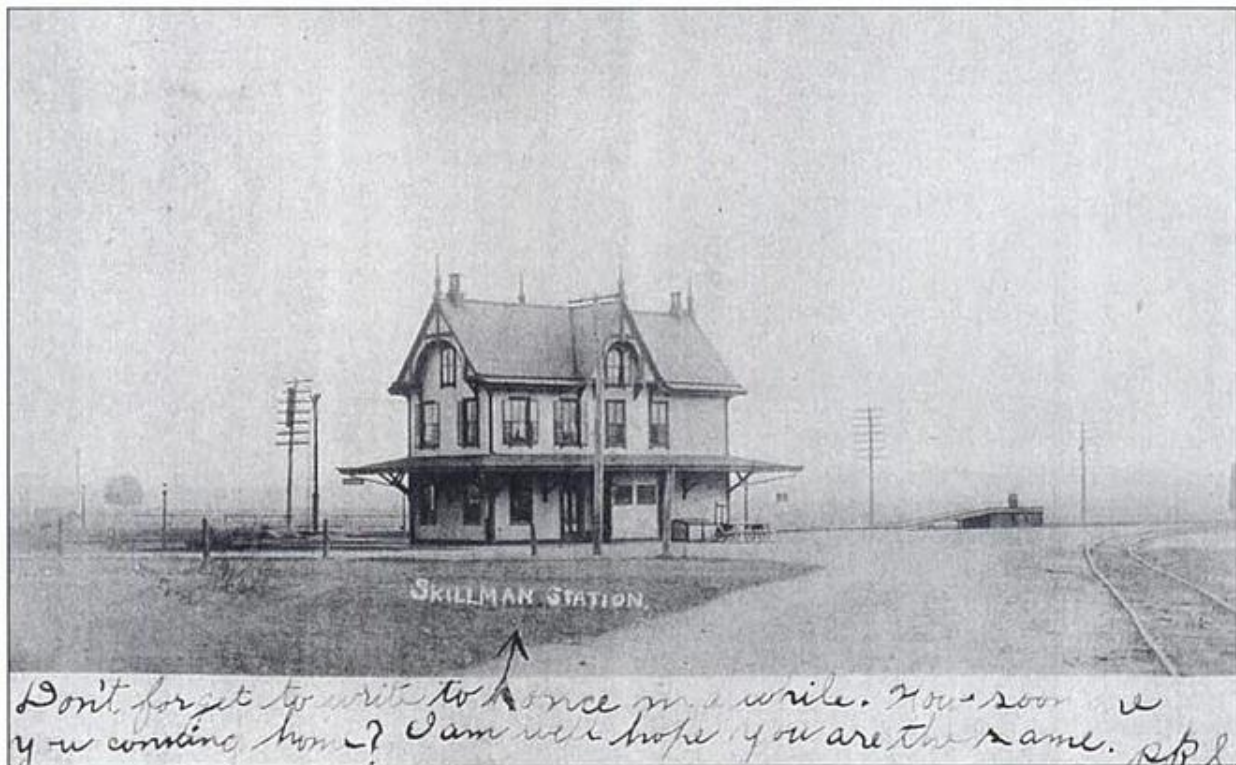 SKILLMAN STATION.
Don't forget to write to once in a while. How soon are
you coming home? I am well hope you are the same.